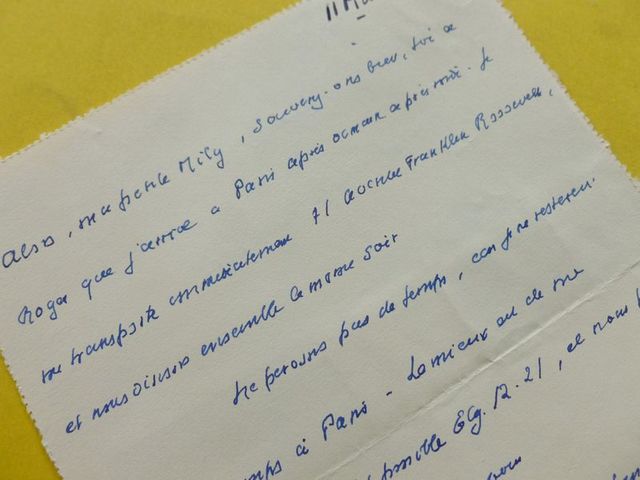 11
Alors, ma petite Mily, bien, toi et
Roger que j'arrive a Paris après demain après midi. Je
me transporte immédiatement 71 avenue Franklin Roosevelt,
et nous dînerons ensemble le même soir
Ne perdons pas de temps, car je ne resterai
à Paris - Le mieux est de me
possible Ely. 12.21, et nous